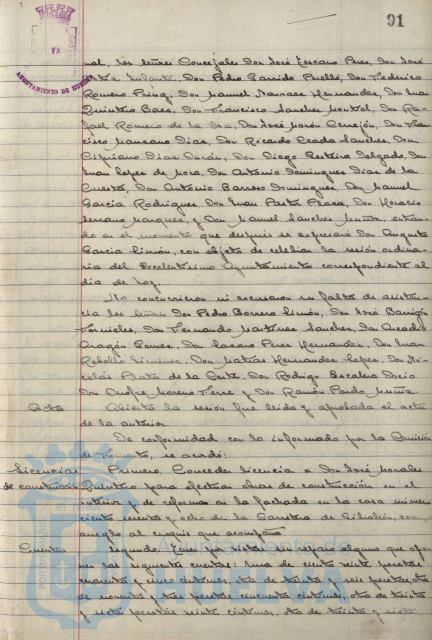 91
AYUNTAMIENTO DE HUELVA
nal, los señores Concejales Don José Lozano Perez, Don José
Infante, Don Pedro Garrido Perelló, Don Federico
Romero Don Manuel Narvaez Hernandez, Don Juan
Quintero Baez, Don Francisco Sanchez Don Ra-
fael Romero de la Don José Morón Cerrejón, Don Fran-
cisco Manzano Diaz, Don Ricardo Sanchez, Don
Cipriano Diaz Durán, Don Diego Delgado, Don
Juan Lopez de Mora, Don Antonio Dominguez Diaz de la
Cuesta, Don Antonio Barroso Dominguez, Don Manuel
Garcia Rodriguez, Don Juan Pastor Don Horacio
Serrano Marquez, y Don Manuel Sanchez entran-
do en el momento que después se expresará Don Augusto
Garcia Limón, con objeto de celebrar la sesión ordina-
ria del Excelentísimo Ayuntamiento correspondiente al
día de hoy.
No concurrieron ni excusaron su falta de asisten-
cia los señores Don Pedro Borrero Limón, Don José Barrigón
Don Fernando Martinez Sanchez, Don Arcadio
Aragón Gomez, Don Lazaro Perez Hernandez, Don Juan
Rebollo Jimenez, Don Matías Hernandez Lopez, Don Ni-
colás de la Corte, Don Rodrigo Escalera
Don Onofre Moreno y Don Ramón Pardo
Acta Abierta la sesión fué leida y aprobada el acta
de la anterior.
De conformidad con lo informado por la Comisión
de Fomento, se acordó:
Licencias Primero. Conceder licencia a Don José Morales
de construcción Quintero para efectuar obras de construcción en el
interior y de reforma en la fachada en la casa número
ciento sesenta y ocho de la Carretera de Gibraleón, con
arreglo al croquis que acompaña.
Cuentas Segundo. sin reparo alguno que apo-
las siguientes cuentas: Una de ciento veinte pesetas
cuarenta y cinco céntimos, otra de treinta y seis pesetas, otra
de noventa y tres pesetas cincuenta céntimos, otra de treinta
y siete pesetas veinte céntimos, otra de treinta y siete